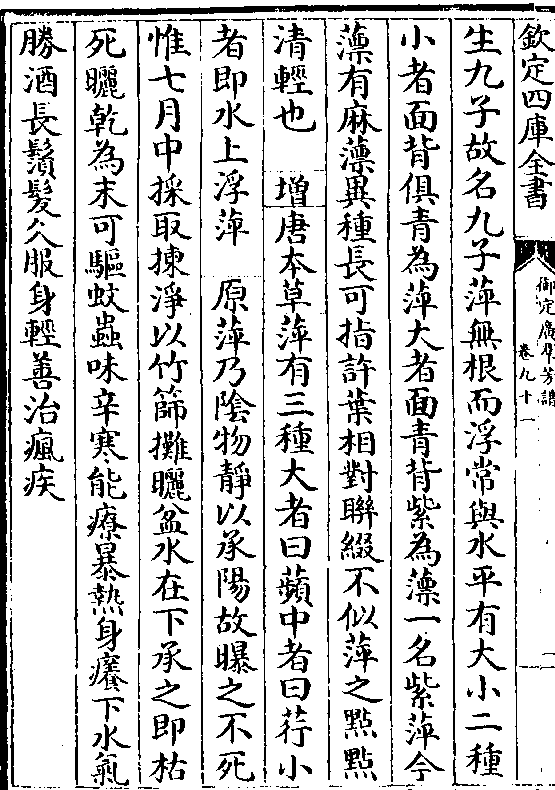 欽定四庫全書
御定廣羣芳譜
卷九十一
生九子故名九子萍無根而浮常與水平有大小二種
小者面背俱青為萍大者面青背紫為薸一名紫萍今
薸有麻薸異種長可指許葉相對聯綴不似萍之點點
清輕也　增唐本草萍有三種大者曰蘋中者曰荇小
者即水上浮萍　原萍乃陰物靜以承陽故曝之不死
惟七月中採取揀淨以竹篩攤曬盆水在下承之即枯
死曬乾為末可驅蚊蟲味辛寒能療暴熱身癢下水氣
勝酒長鬚髮久服身輕善治瘋疾